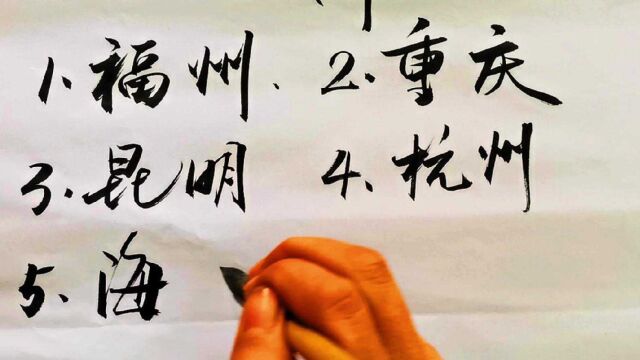 1、福州、2、重庆
3、昆明 4、杭州
5、海